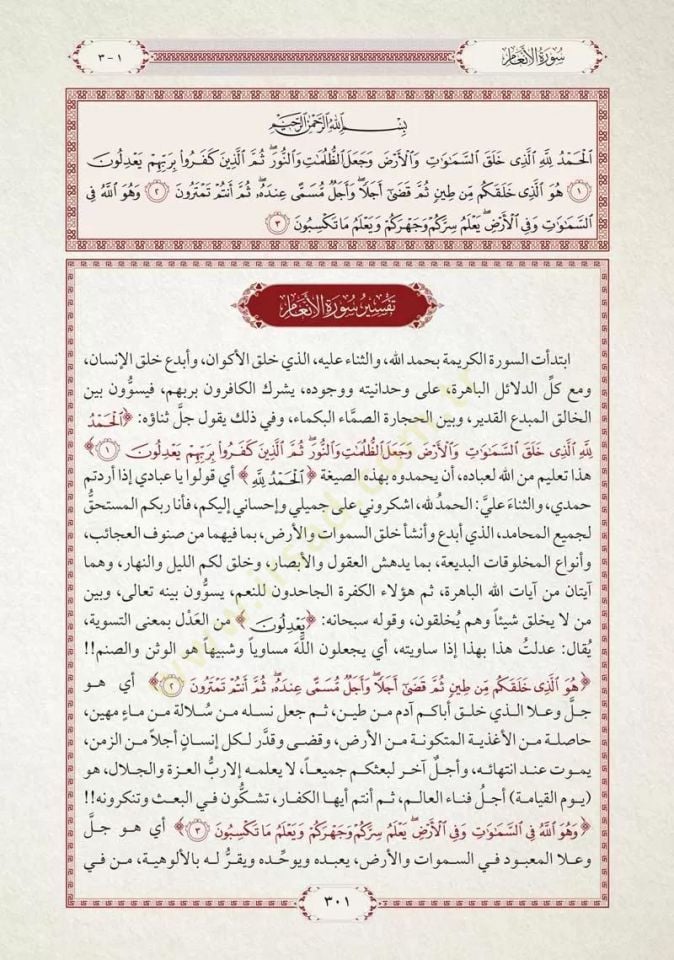 سُورَةُ الأَنْعَام
١ - ٣
بِسْمِ اللَّهِ الرَّحْمَٰنِ الرَّحِيمِ
الْحَمْدُ لِلَّهِ الَّذِى خَلَقَ السَّمَٰوَٰتِ وَالْأَرْضَ وَجَعَلَ الظُّلُمَٰتِ وَالنُّورَ ۖ ثُمَّ الَّذِينَ كَفَرُوا بِرَبِّهِمْ يَعْدِلُونَ
١ هُوَ الَّذِى خَلَقَكُم مِّن طِينٍ ثُمَّ قَضَىٰٓ أَجَلًا ۖ وَأَجَلٌ مُّسَمًّى عِندَهُۥ ۖ ثُمَّ أَنتُمْ تَمْتَرُونَ ٢ وَهُوَ اللَّهُ فِى
السَّمَٰوَٰتِ وَفِى الْأَرْضِ ۖ يَعْلَمُ سِرَّكُمْ وَجَهْرَكُمْ وَيَعْلَمُ مَا تَكْسِبُونَ ٣
تَفْسِيرُ سُورَةِ الأَنْعَام
ابتدأت السورة الكريمة بحمد الله، والثناء عليه، الذي خلق الأكوان، وأبدع خلق الإنسان،
ومع كلِّ الدلائل الباهرة، على وحدانيته ووجوده، يشرك الكافرون بربهم، فيسوُّون بين
الخالق المبدع القدير، وبين الحجارة الصمَّاء البكماء، وفي ذلك يقول جلَّ ثناؤه: ﴿الْحَمْدُ
لِلَّهِ الَّذِى خَلَقَ السَّمَٰوَٰتِ وَالْأَرْضَ وَجَعَلَ الظُّلُمَٰتِ وَالنُّورَ ۖ ثُمَّ الَّذِينَ كَفَرُوا بِرَبِّهِمْ يَعْدِلُونَ ١﴾
هذا تعليم من الله لعباده، أن يحمدوه بهذه الصيغة ﴿الْحَمْدُ لِلَّهِ﴾ أي قولوا يا عبادي إذا أردتم
حمدي، والثناءَ عليَّ: الحمدُ لله، اشكروني على جميلي وإحساني إليكم، فأنا ربكم المستحقُّ
لجميع المحامد، الذي أبدع وأنشأ خلق السموات والأرض، بما فيهما من صنوف العجائب،
وأنواع المخلوقات البديعة، بما يدهش العقول والأبصار، وخلق لكم الليل والنهار، وهما
آيتان من آيات الله الباهرة، ثم هؤلاء الكفرة الجاحدون للنعم، يسوُّون بينه تعالى، وبين
من لا يخلق شيئاً وهم يُخلقون، وقوله سبحانه: ﴿يَعْدِلُونَ﴾ من العَدْل بمعنى التسوية،
يُقال: عدلتُ هذا بهذا إذا ساويته، أي يجعلون اللَّهَ مساوياً وشبيهاً هو الوثن والصنم!!
﴿هُوَ الَّذِى خَلَقَكُم مِّن طِينٍ ثُمَّ قَضَىٰٓ أَجَلًا ۖ وَأَجَلٌ مُّسَمًّى عِندَهُۥ ۖ ثُمَّ أَنتُمْ تَمْتَرُونَ ٢﴾ أي هو
جلَّ وعلا الذي خلق أباكم آدم من طين، ثم جعل نسله من سُلالة من ماءٍ مهين،
حاصلة من الأغذية المتكونة من الأرض، وقضى وقدَّر لكل إنسانٍ أجلاً من الزمن،
يموت عند انتهائه، وأجلٌ آخر لبعثكم جميعاً، لا يعلمه إلا ربُّ العزة والجلال، هو
(يوم القيامة) أجلُ فناء العالم، ثم أنتم أيها الكفار، تشكُّون في البعث وتنكرونه!!
﴿وَهُوَ اللَّهُ فِى السَّمَٰوَٰتِ وَفِى الْأَرْضِ ۖ يَعْلَمُ سِرَّكُمْ وَجَهْرَكُمْ وَيَعْلَمُ مَا تَكْسِبُونَ ٣﴾ أي هو جلَّ
وعلا المعبود في السموات والأرض، يعبده ويوحِّده ويقرُّ له بالألوهية، من في
٣٠١